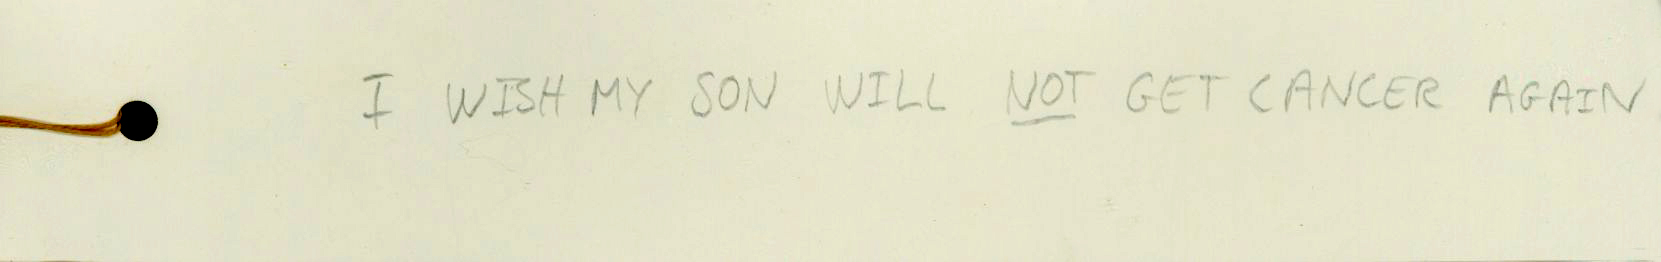 I WISH MY SON WILL NOT GET CANCER AGAIN